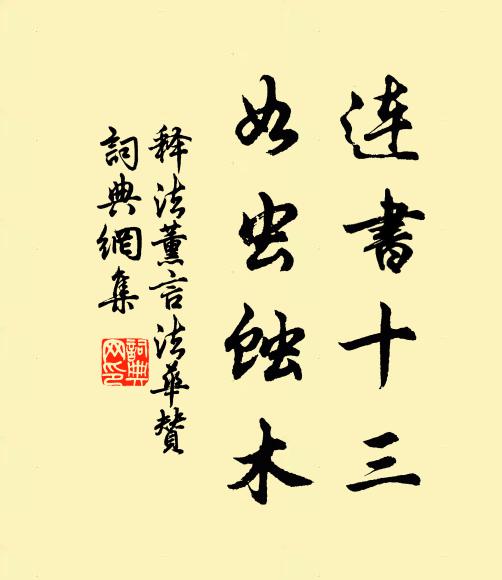 連書十三
如虫蝕木
释法薰言法華贊
詞典網集
詞典
网印